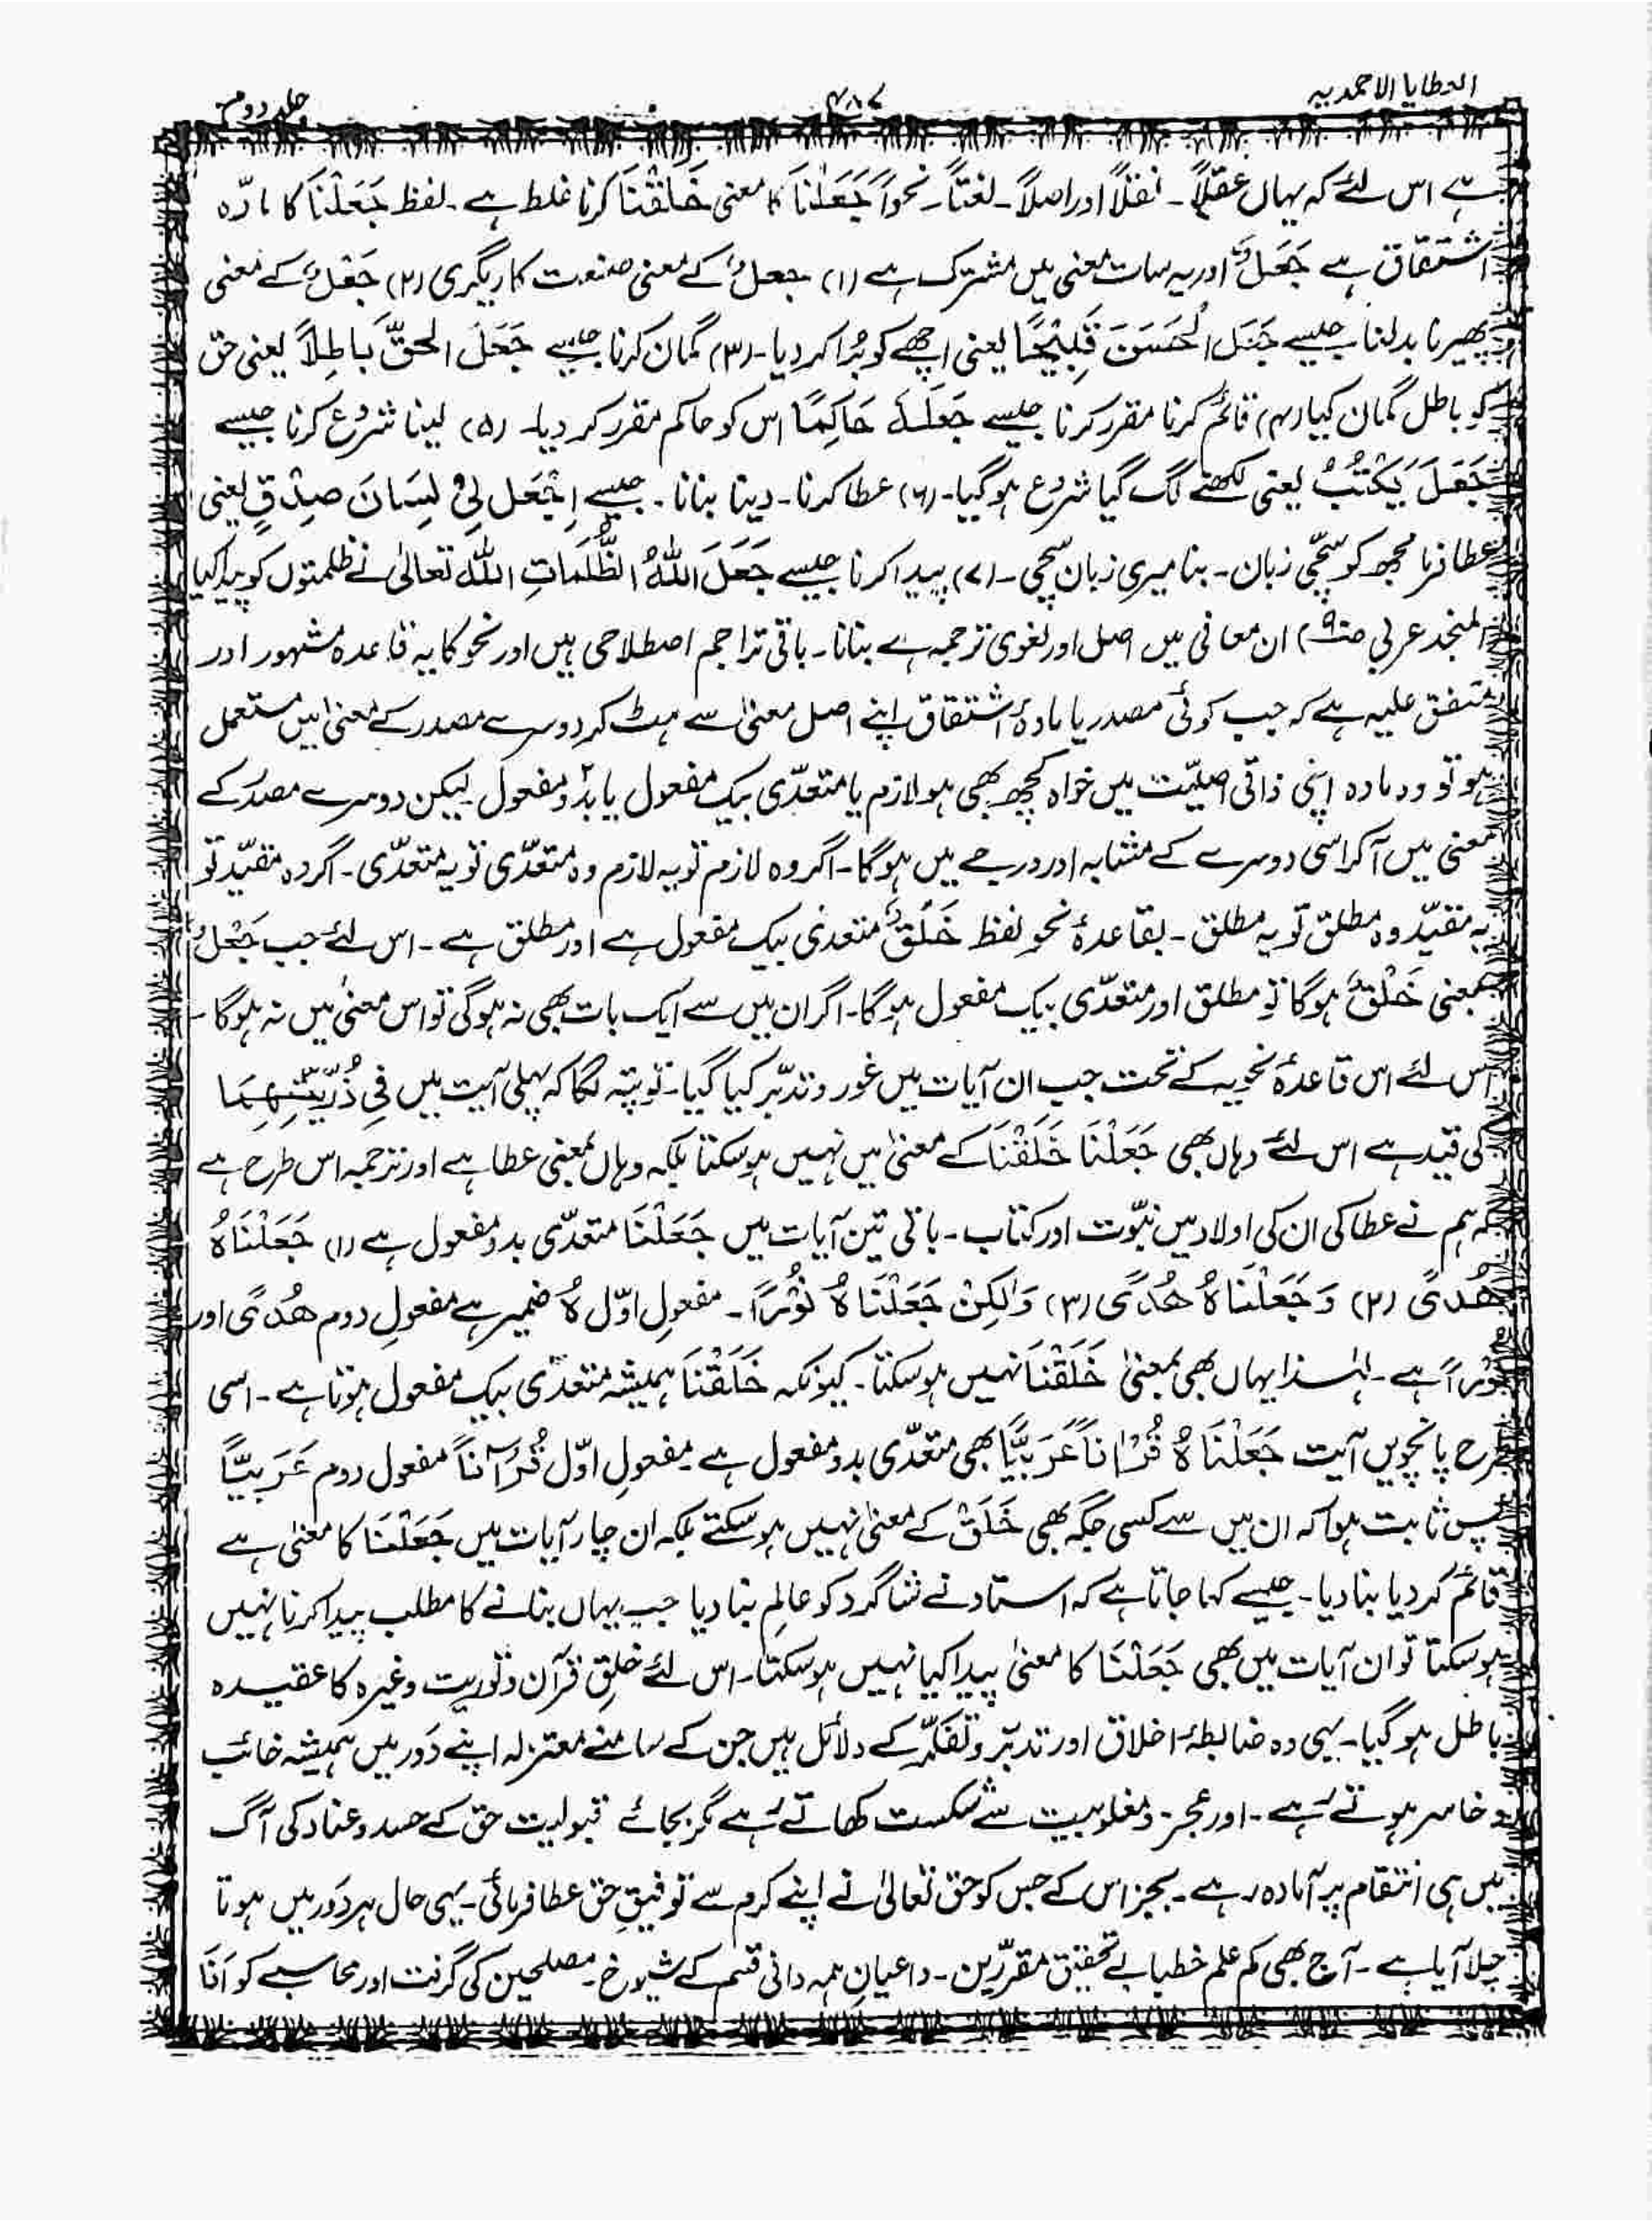 العطایا الاحمدیہ
۴۸۷
جلد دوم
ہے اس لئے کہ یہاں عقلاً۔ نقلاً اور اصلاً۔ لغتاً۔ نحواً جَعَلْنَا کا معنی خَلَقْنَا کرنا غلط ہے۔ لفظ جَعَلْنَا کا مادّہ
اشتقاق ہے جَعَلَ اور یہ سات معنی میں مشترک ہے (۱) جعلٌ کے معنی صنعت کاریگری (۲) جَعْلٌ کے معنی
پھیرنا بدلنا جیسے جَعَلَ الْحَسَنَ قَبِیْحًا یعنی اچھے کو بُرا کر دیا۔ (۳) گمان کرنا جیسے جَعَلَ الحقَّ بَاطِلاً یعنی حق
کو باطل گمان کیا (۴) قائم کرنا مقرر کرنا جیسے جَعَلَہٗ حَاکِمًا اس کو حاکم مقرر کر دیا۔ (۵) لینا شروع کرنا جیسے
جَعَلَ یَکْتُبُ یعنی لکھنے لگ گیا شروع ہو گیا۔ (۶) عطا کرنا۔ دینا بنانا۔ جیسے اِجْعَل لِیْ لِسَانَ صِدْقٍ یعنی
عطا فرما مجھ کو سچّی زبان۔ بنا میری زبان سچی۔ (۷) پیدا کرنا جیسے جَعَلَ اللّٰہُ الظُّلُمَاتِ اللّٰہ تعالیٰ نے ظلمتوں کو پیدا کیا
(المنجد عربی ) ان معانی میں اصل اور لغوی ترجمہ ہے بنانا۔ باقی تراجم اصطلاحی ہیں اور نحو کا یہ قاعدہ مشہور اور
متفق علیہ ہے کہ جب کوئی مصدر یا مادۂ اشتقاق اپنے اصل معنیٰ سے ہٹ کر دوسرے مصدر کے معنیٰ میں مستعمل
ہو تو وہ مادہ اپنی ذاتی اصلیّت میں خواہ کچھ بھی ہو لازم یا متعدّی بیک مفعول یا بدو مفعول لیکن دوسرے مصدر کے
معنی میں آکر اسی دوسرے کے مشابہ اور درجے میں ہوگا۔ اگر وہ لازم تو یہ لازم وہ متعدّی تو یہ متعدّی۔ اگر وہ مقیّد تو
یہ مقیّد وہ مطلق تو یہ مطلق۔ بقاعدۂ نحو لفظ خَلَقَ متعدی بیک مفعول ہے اور مطلق ہے۔ اس لئے جب جَعْلٌ
بمعنی خَلْقٌ ہوگا تو مطلق اور متعدّی بیک مفعول ہوگا۔ اگر ان میں سے ایک بات بھی نہ ہوگی تو اس معنیٰ میں نہ ہوگا۔
اس لئے اس قاعدۂ نحویہ کے تحت جب ان آیات میں غور و تدبّر کیا گیا۔ تو پتہ لگا کہ پہلی آیت میں فِی ذُرِّیَّتِہِمَا
کی قید ہے اس لئے وہاں بھی جَعَلْنَا خَلَقْنَا کے معنیٰ میں نہیں ہو سکتا بلکہ وہاں بمعنی عطا ہے اور ترجمہ اس طرح ہے
کہ ہم نے عطا کی ان کی اولاد میں نبوّت اور کتاب۔ باقی تین آیات میں جَعَلْنَا متعدّی بدو مفعول ہے (۱) جَعَلْنَاہُ
ھُدًی (۲) وَجَعَلْنَاہُ ھُدًی (۳) وَلٰکِنْ جَعَلْنَاہُ نُوْرًا۔ مفعولِ اوّل ہُ ضمیر ہے مفعولِ دوم ھُدًی اور
نُوْرًا ہے۔ لہٰذا یہاں بھی بمعنیٰ خَلَقْنَا نہیں ہو سکتا۔ کیونکہ خَلَقْنَا ہمیشہ متعدّی بیک مفعول ہوتا ہے۔ اسی
طرح پانچویں آیت جَعَلْنَاہُ قُرْاٰناً عَرَبِیًّا بھی متعدّی بدو مفعول ہے۔ مفعولِ اوّل قُرْآناً مفعول دوم عَرَبِیًّا
پس ثابت ہوا کہ ان میں سے کسی جگہ بھی خَلَقَ کے معنیٰ نہیں ہو سکتے بلکہ ان چار آیات میں جَعَلْنَا کا معنیٰ ہے
قائم کر دیا بنا دیا۔ جیسے کہا جاتا ہے کہ استاد نے شاگرد کو عالم بنا دیا جب یہاں بنانے کا مطلب پیدا کرنا نہیں
ہو سکتا تو ان آیات میں بھی جَعَلْنَا کا معنیٰ پیدا کیا نہیں ہو سکتا۔ اس لئے خلقِ قرآن و توریت وغیرہ کا عقیدہ
باطل ہو گیا۔ یہی وہ ضابطۂ اخلاق اور تدبّر و تفکّر کے دلائل ہیں جن کے سامنے معتزلہ اپنے دَور میں ہمیشہ خائب
و خاسر ہوتے رہے۔ اور عجز و مغلوبیت شکست کھاتے رہے مگر بجائے قبولیت حق کے حسد و عناد کی آگ
میں ہی انتقام پر آمادہ رہے۔ بجز اس کے جس کو حق تعالیٰ نے اپنے کرم سے توفیقِ حق عطا فرمائی۔ یہی حال ہر دَور میں ہوتا
چلا آیا ہے۔ آج بھی کم علم خطباء بے تحقیق مقرّرین۔ داعیانِ ہمہ دانی قسم کے شیوخ۔ مصلحین کی گرفت اور محاسبے کو اَنَا